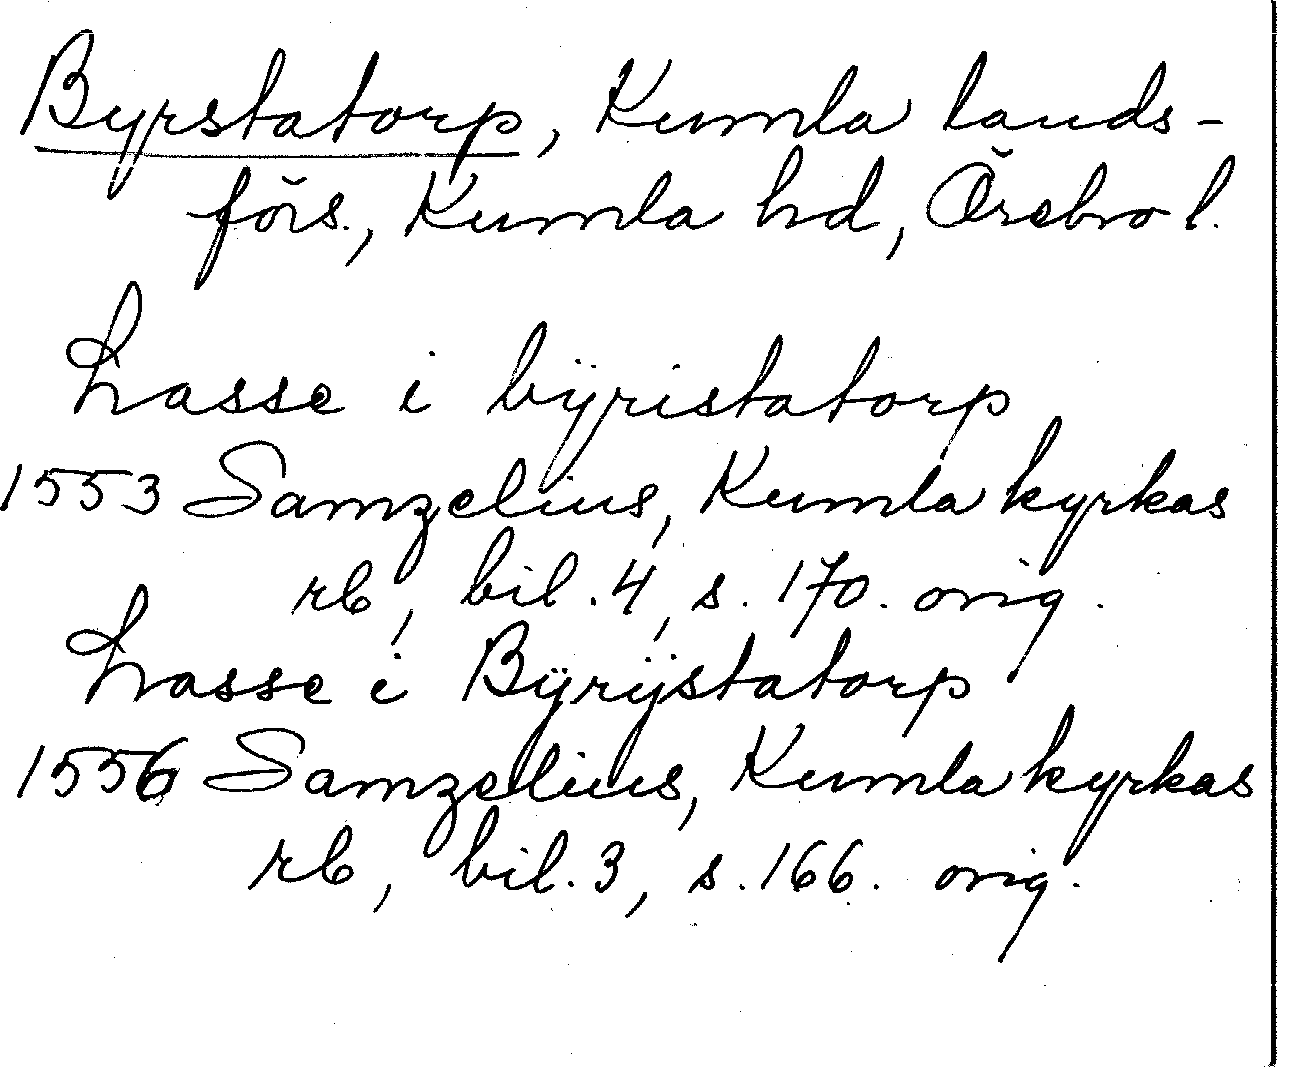 Byrstatorp, Kumla lands-
förs., Kumla hd, Örebro l.
Lasse i bÿristatorp
1553 Samzelius, Kumla kyrkas
rb, bil. 4, s. 170. orig.
Lasse i Bÿrÿstatorp
1556 Samzelius, Kumla kyrkas
rb, bil. 3, s. 166. orig.